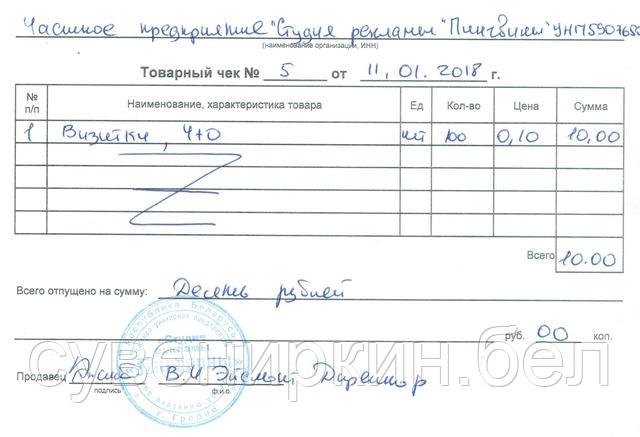 Частное предприятие "Студия рекламы "Пингвины" УНП 5907650
(наименование организации, ИНН)
Товарный чек № 5 от 11.01.2018 г.
№ п/п Наименование, характеристика товара Ед Кол-во Цена Сумма
1 Визитки, 4+0 шт 100 0,10 10,00
Всего 10.00
Всего отпущено на сумму: Десять рублей
руб. 00 коп.
сувениркин.бел
Продавец В.И Эйсмонт Директор
подпись ф.и.о.
Республика Беларусь
Студия
рекламы
г. Гродно